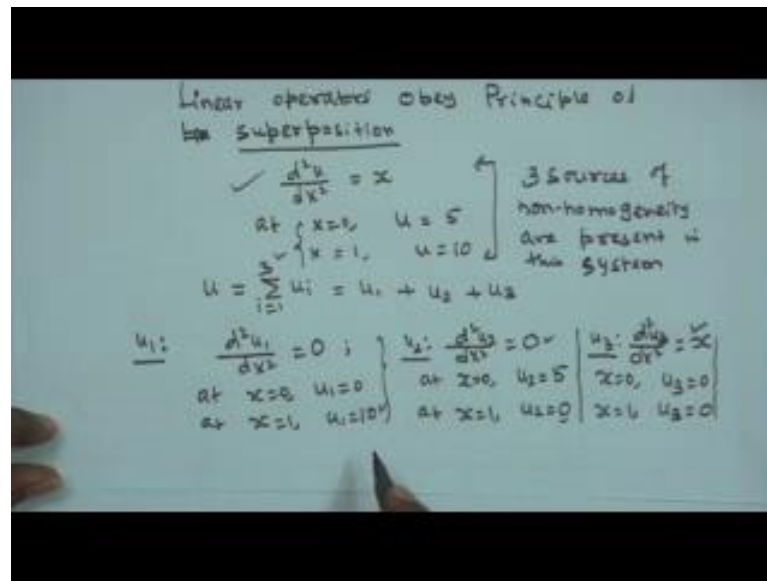 Linear operators obey Principle of
superposition
✓ d²u/dx² = x
at x=0, u = 5
x = 1, u = 10
3 sources of
non-homogeneity
are present in
this system
u = Σ i=1 3 ui = u1 + u2 + u3
u1: d²u1/dx² = 0 ;
at x=0, u1=0
at x=1, u1=10
u2: d²u2/dx² = 0
at x=0, u2=5
at x=1, u2=0
u3: d²u3/dx² = x
x=0, u3=0
x=1, u3=0